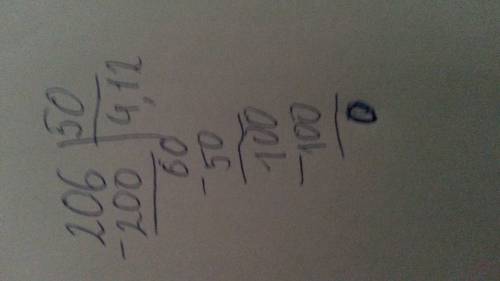 206 50
-200 4,12
60
-50
100
-100
0